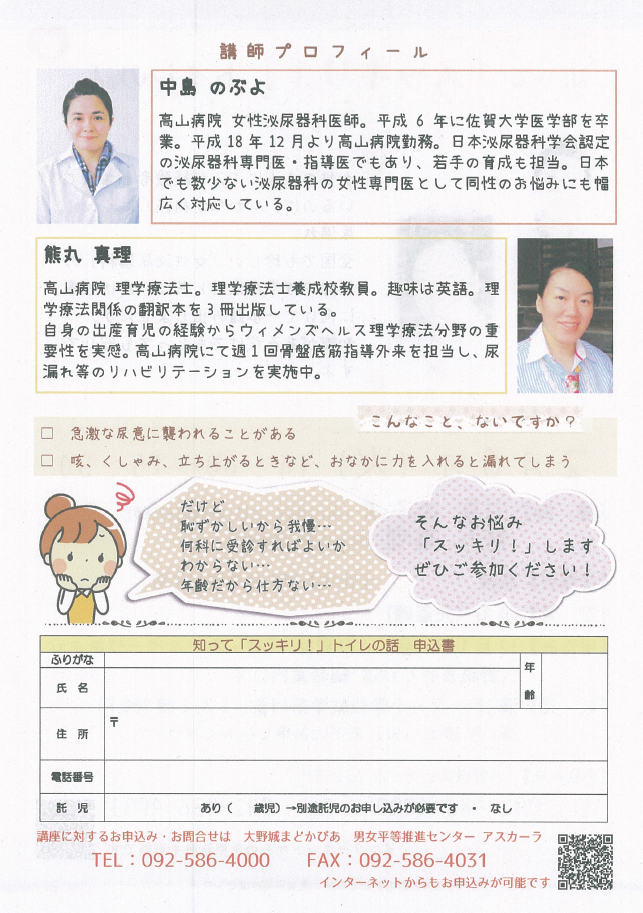 講師プロフィール
中島 のぶよ
高山病院 女性泌尿器科医師。平成 6 年に佐賀大学医学部を卒
業。平成 18 年 12 月より高山病院勤務。日本泌尿器科学会認定
の泌尿器科専門医・指導医でもあり、若手の育成も担当。日本
でも数少ない泌尿器科の女性専門医として同性のお悩みにも幅
広く対応している。
熊丸 真理
高山病院 理学療法士。理学療法士養成校教員。趣味は英語。理
学療法関係の翻訳本を 3 冊出版している。
自身の出産育児の経験からウィメンズヘルス理学療法分野の重
要性を実感。高山病院にて週 1 回骨盤底筋指導外来を担当し、尿
漏れ等のリハビリテーションを実施中。
こんなこと、ないですか?
□ 急激な尿意に襲われることがある
□ 咳、くしゃみ、立ち上がるときなど、おなかに力を入れると漏れてしまう
だけど
恥ずかしいから我慢…
何科に受診すればよいか
わからない…
年齢だから仕方ない…
そんなお悩み
「スッキリ!」します
ぜひご参加ください!
知って「スッキリ!」トイレの話 申込書
ふりがな
氏 名
年齢
住 所
〒
電話番号
託 児
あり( 歳児)→別途託児のお申し込みが必要です ・ なし
講座に対するお申込み・お問合せは 大野城まどかぴあ 男女平等推進センター アスカーラ
TEL:092-586-4000 FAX:092-586-4031
インターネットからもお申込みが可能です